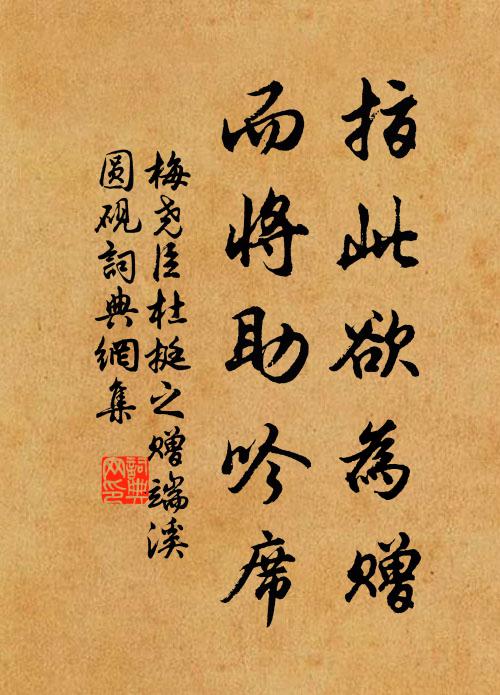 指此欲為贈
而將助吟席
梅堯臣杜挺之贈端溪
圓硯詞典網集
詞典网印